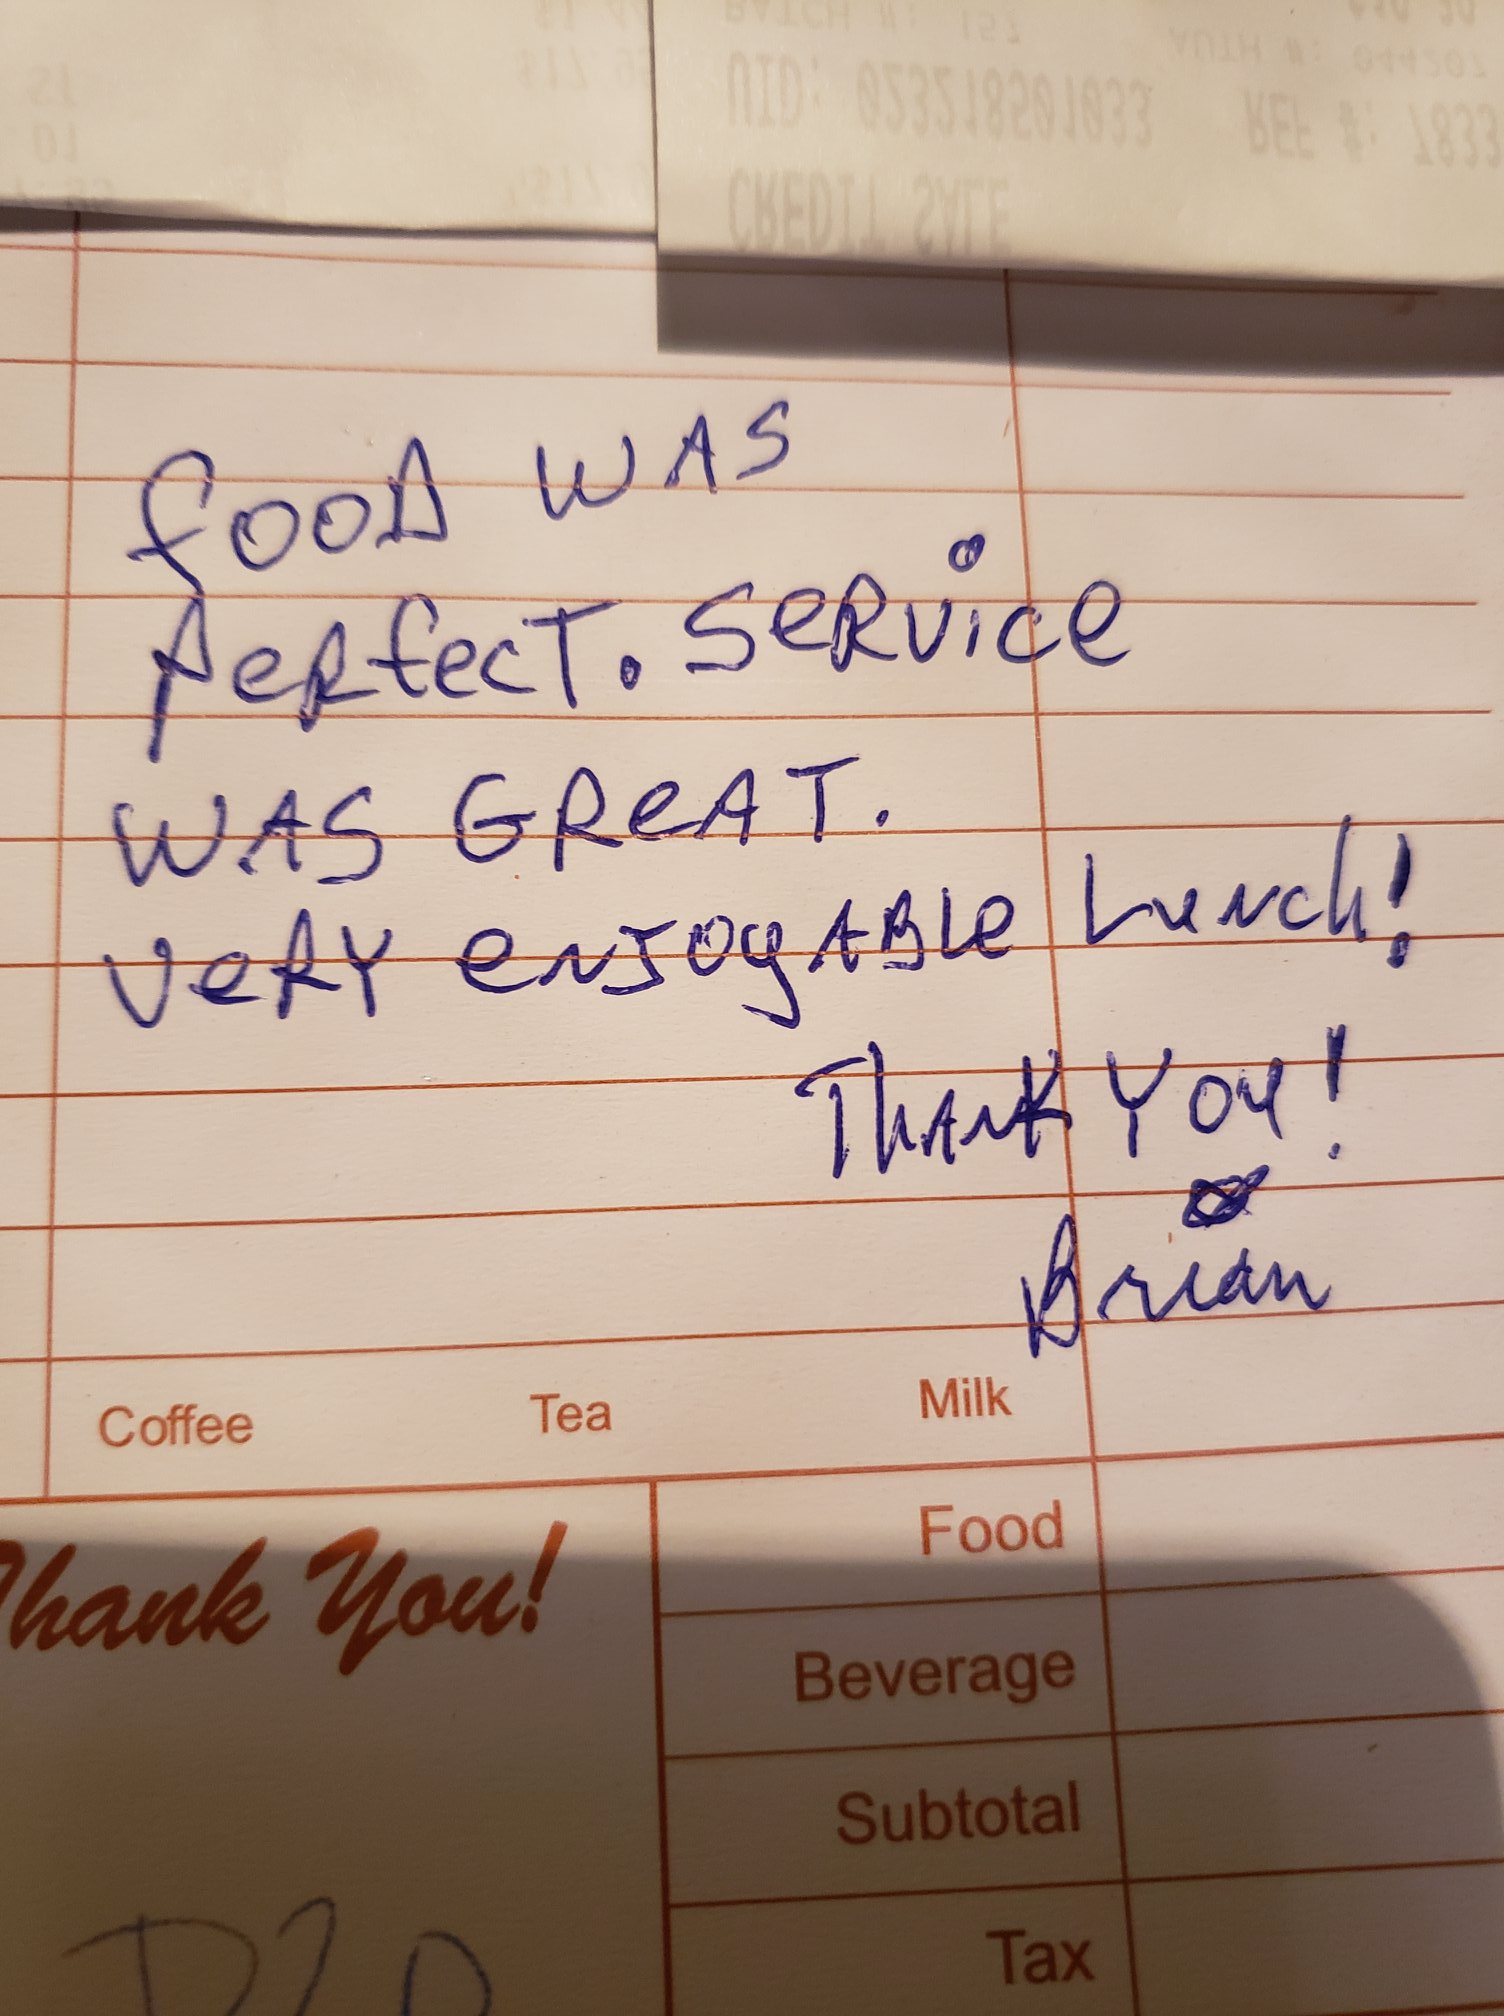 BATCH #: 157
AUTH #: 044207
UID: 023218501033 REF #: 7833
CREDIT SALE
fooD WAS
PeRfecT. SeRvice
WAS GReAT.
VeRY eNJOyABLe Lunch!
THANK YOU!
Brian
Coffee Tea Milk
Thank You!
Food
Beverage
Subtotal
Tax